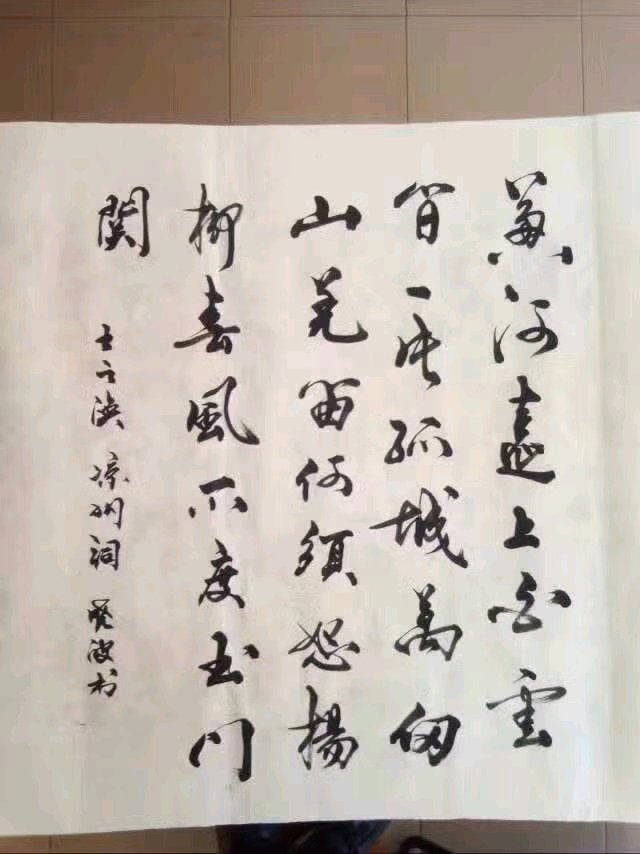 黄河遠上白雲
间一片孤城萬仞
山羌笛何須怨楊
柳春風不度玉門
関 王之涣 凉州詞 波书